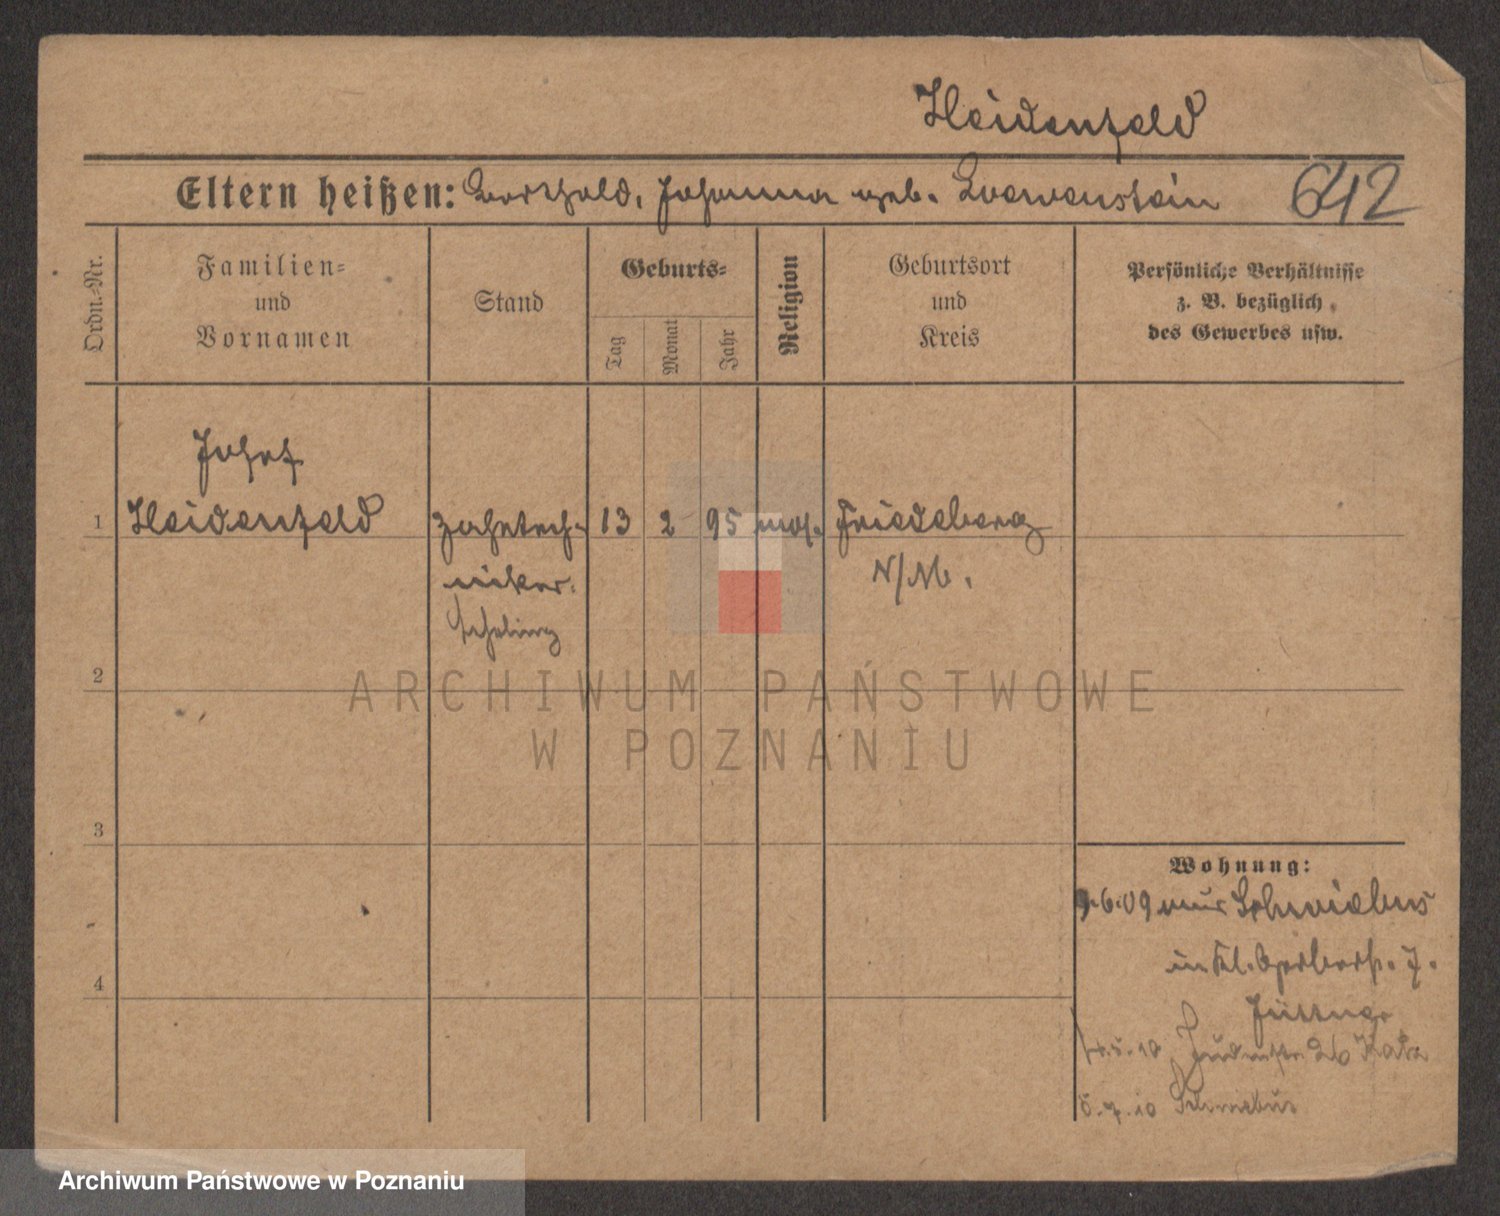 Heidenfeld
Eltern heißen: Berthold, Johanna geb. Loewenstein 642
Ordn.-Nr.
Familien-
und
Vornamen
Stand
Geburts-
Tag
Monat
Jahr
Religion
Geburtsort
und
Kreis
Persönliche Verhältnisse
z. B. bezüglich
des Gewerbes usw.
Josef
1 Heidenfeld Zahntech- 13 2 95 mos. Friedeberg
niker. N/M.
lehrling
2
3
4
ARCHIWUM PAŃSTWOWE
W POZNANIU
Wohnung:
9.6.09 aus Schwiebus
in Kl. Gerberstr. 7.
Judenstr. 26 Katz
5.7.10 Schwiebus
Archiwum Państwowe w Poznaniu